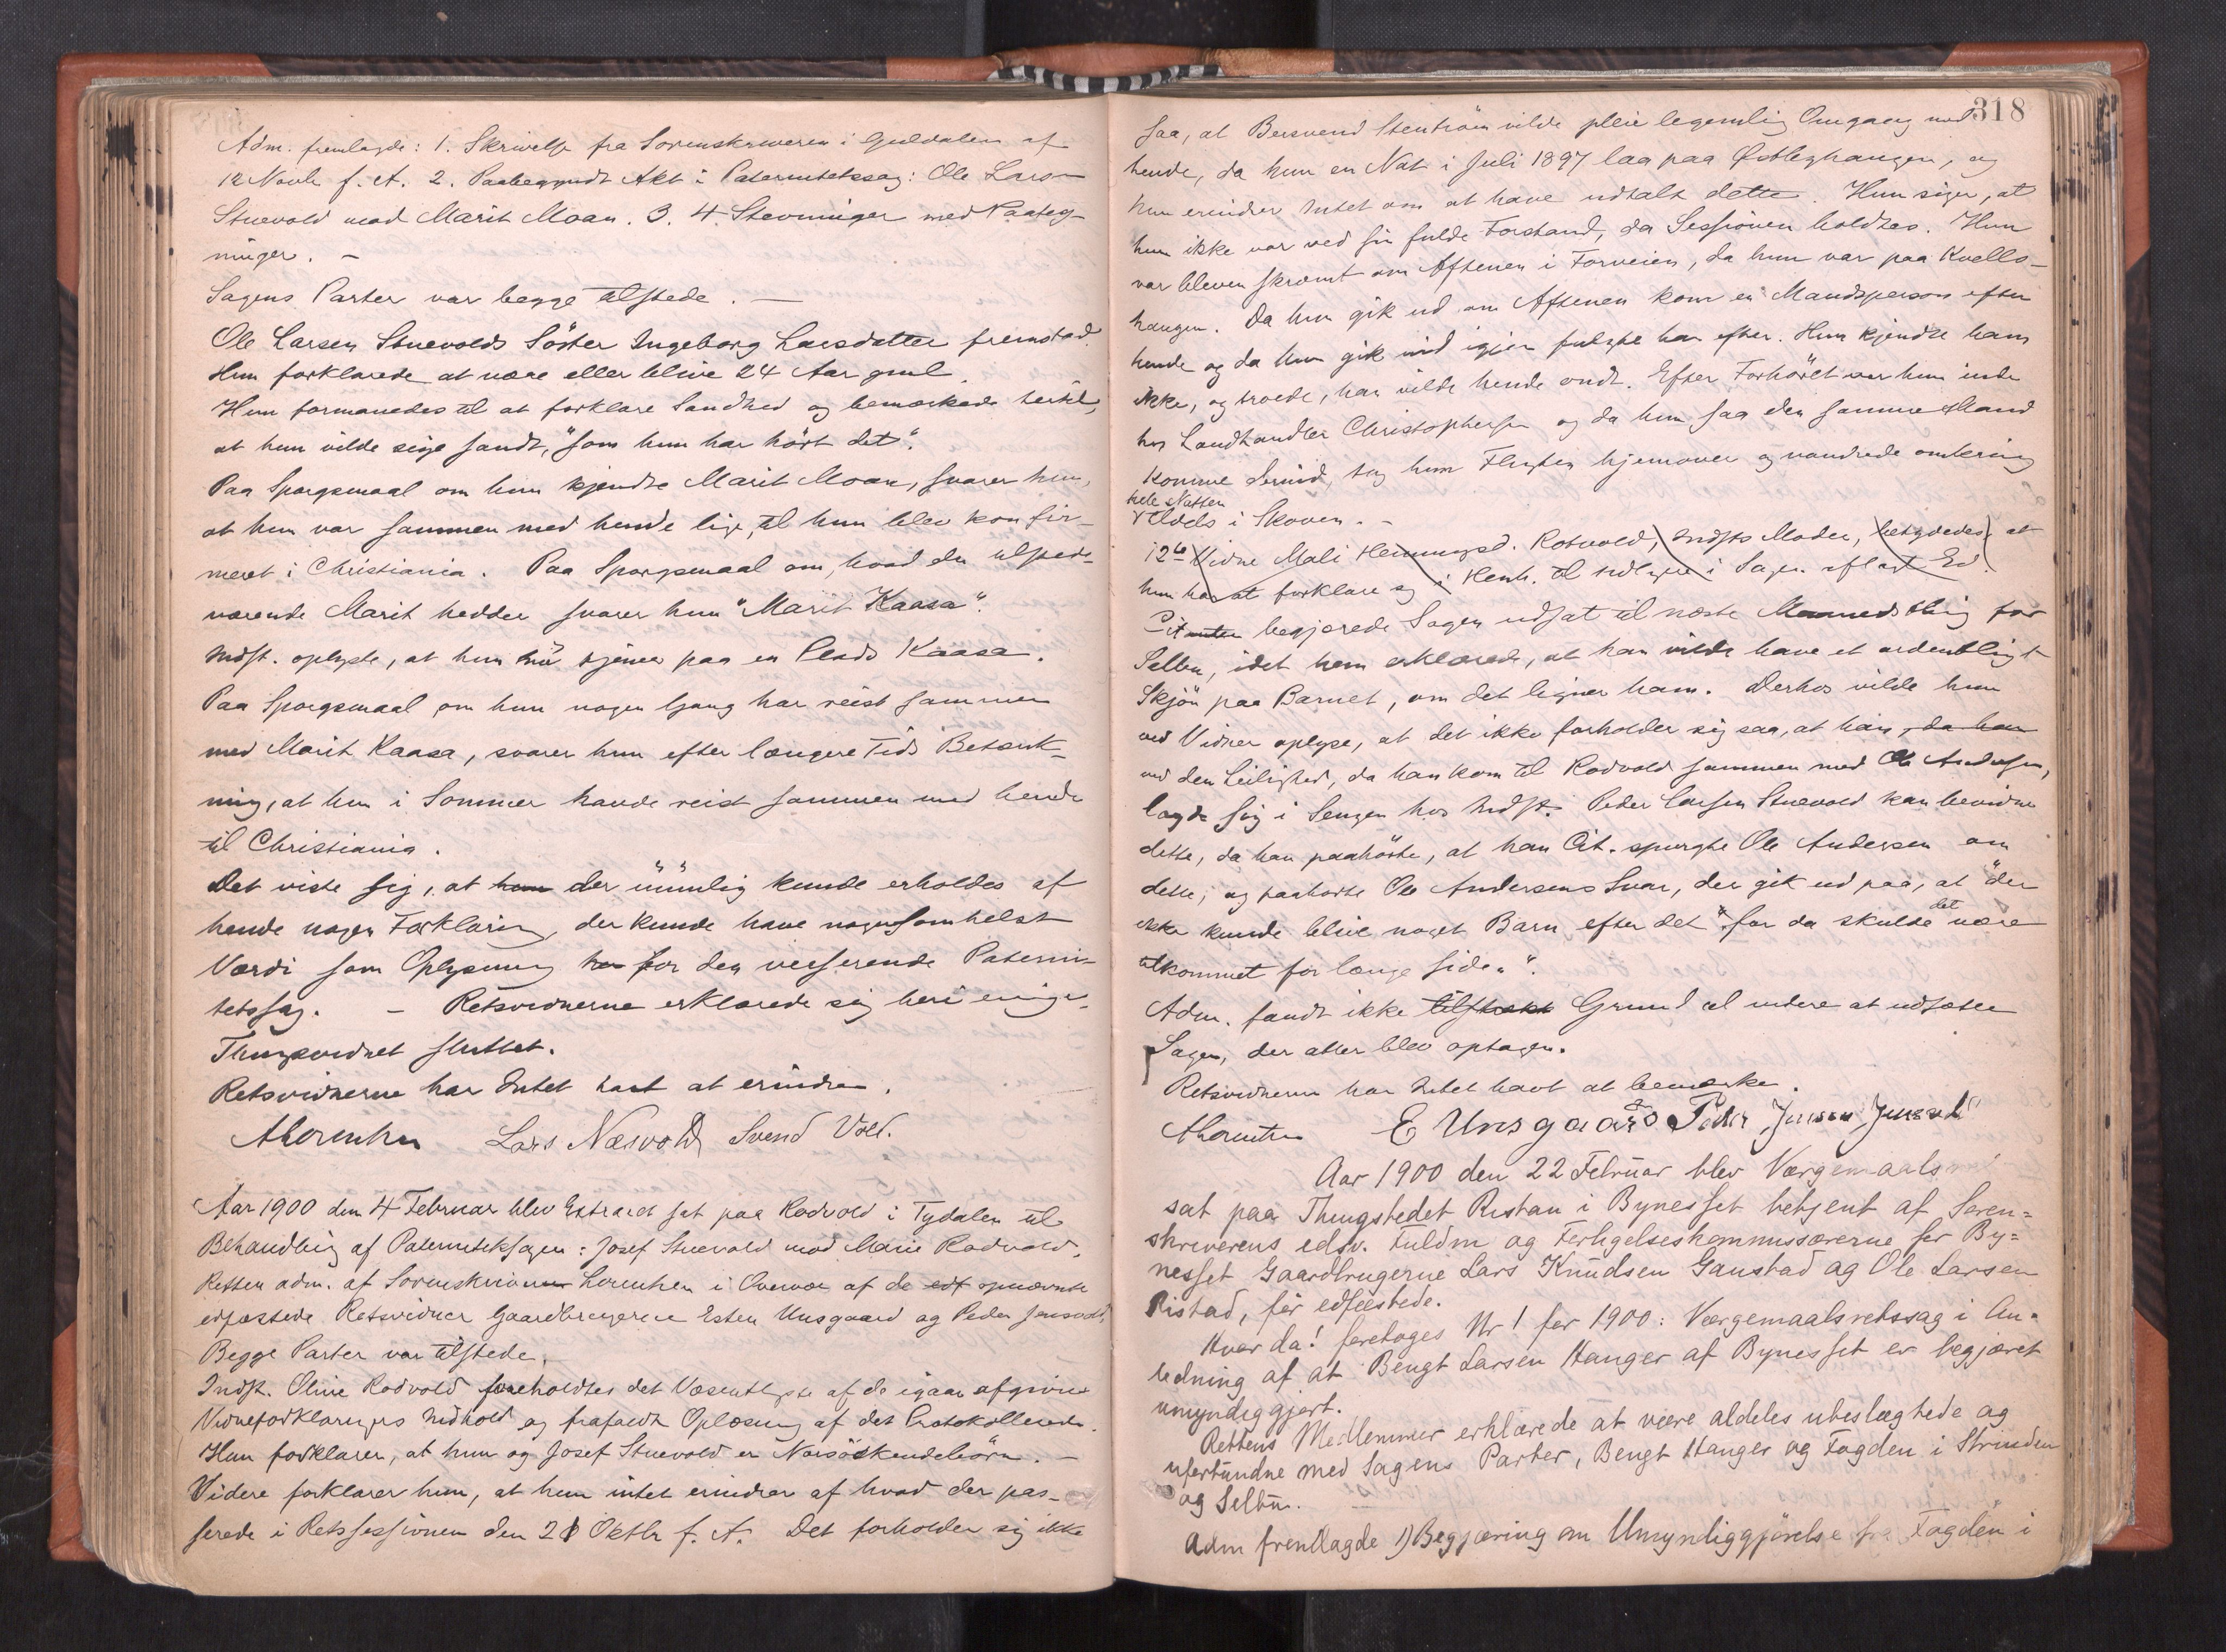 Adm. fremlagde: 1. Skrivelse fra Sorenskriveren i Guldalen af
12 Novbr f. A. 2. Paabegyndt Akt i Paternitetssag: Ole Lars-
Stuevold mod Marit Moan. 3. 4 Stevninger med Paateg-
ninger. -
Sagens Parter var begge tilstede. -
Ole Larsen Stuevolds Söster Ingeborg Larsdatter fremstod.
Hun forklarede at være eller blive 24 Aar gml.
Hun formanedes til at forklare Sandhed og bemærkede hertil,
at hun vilde sige sandt, "som hun har hört det".
Paa Spørgsmaal om hun kjendte Marit Moan, svarer hun,
at hun var sammen med hende lige, til hun blev konfir-
meret i Christiania. Paa Spørgsmaal om, hvad den tilstede-
værende Marit hedder svarer hun "Marit Kaasa".
Indst. oplyste, at hun nu tjener paa en Plads Kaasa.
Paa Spørgsmaal om hun nogen Gang har reist sammen
med Marit Kaasa, svarer hun efter længere Tids Betænk-
ning, at hun i Sommer havde reist sammen med hende
til Christiania.
Det viste sig, at hun der umulig kunde erholdes af
hende nogen Forklaring, der kunde have nogensomhelst
Værdi som Oplysning her for den verserende Paterni-
tetssag. - Retsvidnerne erklærede sig heri enige.
Thingsvidnet sluttet.
Retsvidnerne har Intet havt at erindre.
ALorentzen Lars Næsvold Svend Vold.
Aar 1900 den 4 Februar blev Extraret sat paa Rodvold i Tydalen til
Behandling af Paternitetssagen: Josef Stuevold mod Marie Rodvold.
Retten adm. af Sorenskriveren Lorentzen i Overvær af de edf opnævnte
edfæstede Retsvidner Gaardbrugerne Esten Unsgaard og Peder Jensvold.
Begge Parter var tilstede.
Indst. Oline Rodvold foreholdtes det Væsentligste af de igaar afgivne
Vidneforklaringers Indhold og frafaldt Oplæsning af det Protokollerede.
Hun forklarer, at hun og Josef Stuevold er Næsöskendebörn. -
Videre forklarer hun, at hun intet erindrer af hvad der pas-
serede i Retssessionen den 21 Oktbr f. A. Det forholder sig ikke
318
saa, at Bersvend Stenström vilde pleie legemlig Omgang med
hende, da hun en Nat i Juli 1897 laa paa Østbyhaugen, og
hun erindrer Intet om at have udtalt dette. Hun siger, at
hun ikke var ved sin fulde Forstand, da Sessionen holdtes. Hun
var bleven skræmt om Aftenen i Forveien, da hun var paa Kvello-
haugen. Da hun gik ud om Aftenen kom en Mandsperson efter
hende og da hun gik ind igjen fulgte han efter. Hun kjendte ham
ikke, og troede, han vilde hende ondt. Efter Forhöret var hun inde
hos Landhandler Christophersen og da hun saa den samme Mand
komme derind, tog hun Flugten hjemover og vandrede omkring
hele Natten
tildels i Skoven. -
12te Vidne Mali Henningsd. Rotvold, Indsts Moder, betydedes at
hun har at forklare sig i Henh. til tidligere i Sagen aflagt Ed.
Citanten begjærede Sagen udsat til næste Maanedsthing for
Selbu, idet han erklærede, at han vilde have et ordentligt
Skjön paa Barnet, om det ligner ham. Derhos vilde han
ved Vidner oplyse, at det ikke forholder sig saa, at han, da han
ved den Leilighed, da han kom til Rodvold sammen med Ole Andersen,
lagde sig i Sengen hos Indst. Peder Larsen Stuevold kan bevidne
dette, da han paahörte, at han Cit. spurgte Ole Andersen om
dette, og paahörte Ole Andersens Svar, der gik ud paa, at "der
ikke kunde blive noget Barn efter det" for da skulde det være
tilkommet for længe siden".
Adm. fandt ikke tilstrækk Grund til videre at udsætte
Sagen, der atter blev optagen.
Retsvidnerne har Intet havt at bemærke.
ALorentzen E Unsgaard Peder Jensen Jensvold
Aar 1900 den 22 Februar blev Værgemaalsret
sat paa Thingstedet Ristan i Bynesset betjent af Soren-
skriverens edsv. Fuldm og Forligelseskommissærerne for By-
nesset Gaardbrugerne Lars Knudsen Ganstad og Ole Larsen
Ristad, før edfæstede.
Hvor da! foretoges Nr 1 for 1900: Værgemaalsretssag i An-
ledning af at Bengt Larsen Hanger af Bynesset er begjæret
umyndiggjort.
Rettens Medlemmer erklærede at være aldeles ubeslægtede og
uforbundne med Sagens Parter, Bengt Hanger og Fogden i Strinden
og Selbu.
Adm fremlagde 1) Begjæring om Umyndiggjörelse fra Fogden i